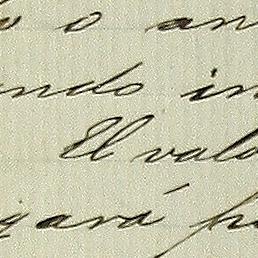 o o an
ndo in
El valo
gará po